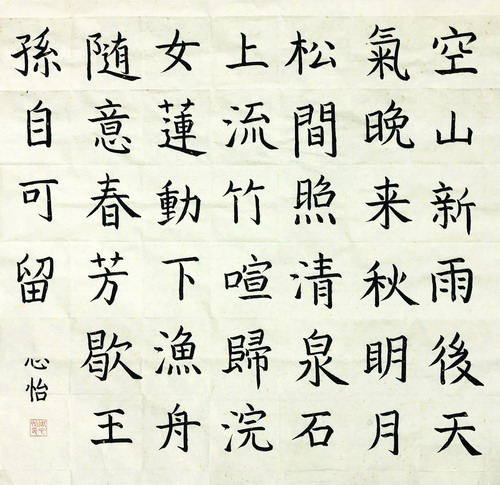 空山新雨後天
氣晚来秋明月
松間照清泉石
上流竹喧歸浣
女蓮動下漁舟
随意春芳歇王
孫自可留
心怡